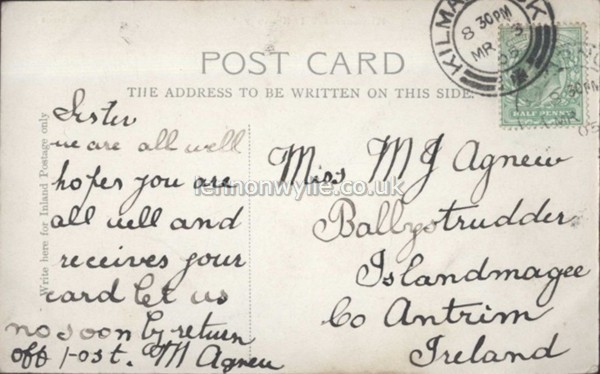 POST CARD
THE ADDRESS TO BE WRITTEN ON THIS SIDE.
KILMARNOCK
8 30PM
MR 3
05
HALF PENNY
30PM
05
Write here for Inland Postage only
Sister
we are all well
hopes you are
all well and
receives your
card let us
no soon by return
off post. M Agnew
Miss M J Agnew
Ballystrudder
Islandmagee
Co Antrim
Ireland
lennonwylie.co.uk